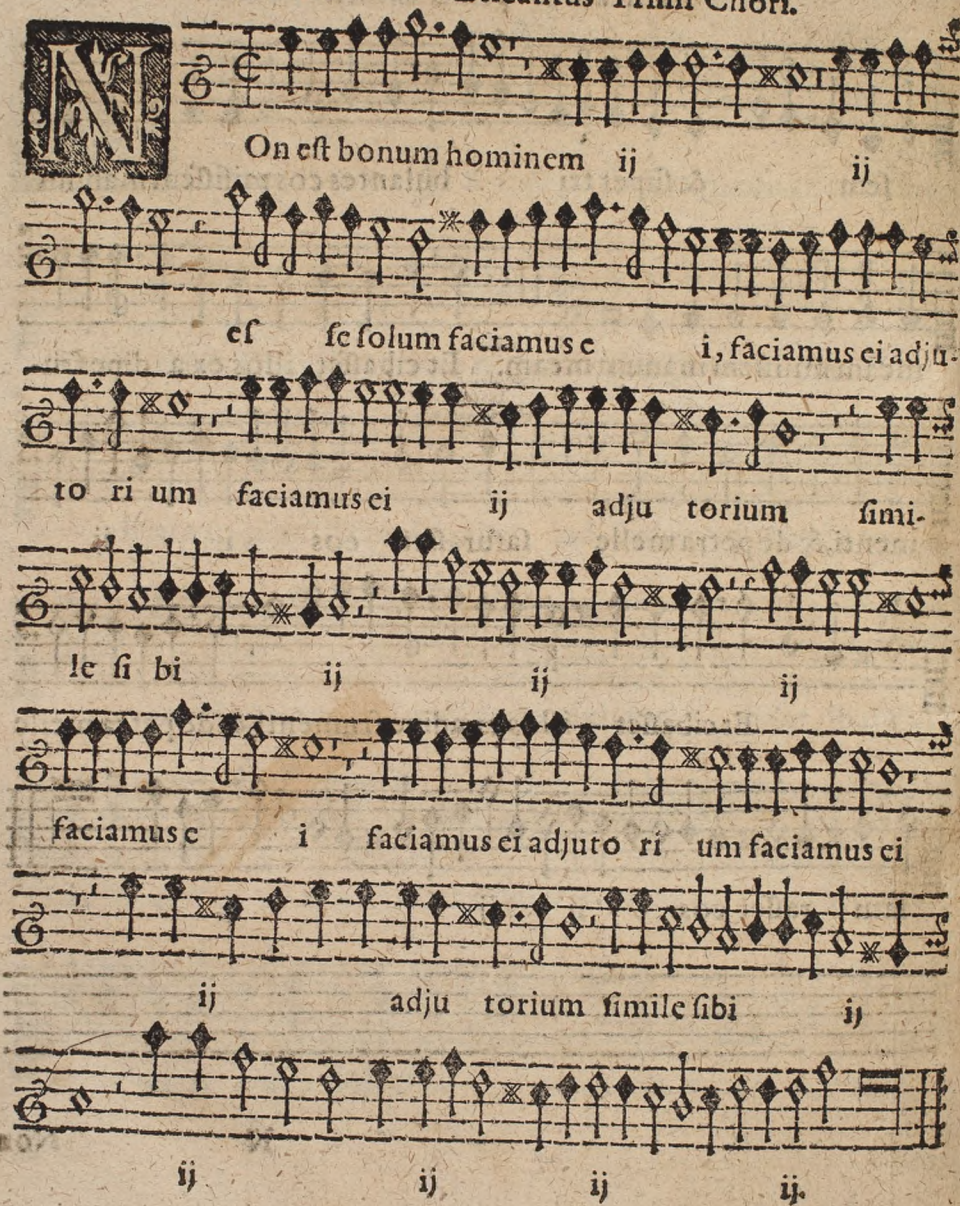 Primi Chori.
NOn est bonum hominem ij ij
es se solum faciamus e i, faciamus ei adju-
to ri um faciamus ei ij adju torium simi-
le si bi ij ij ij
faciamus e i faciamus ei adjuto ri um faciamus ei
ij adju torium simile sibi ij
ij ij ij ij.